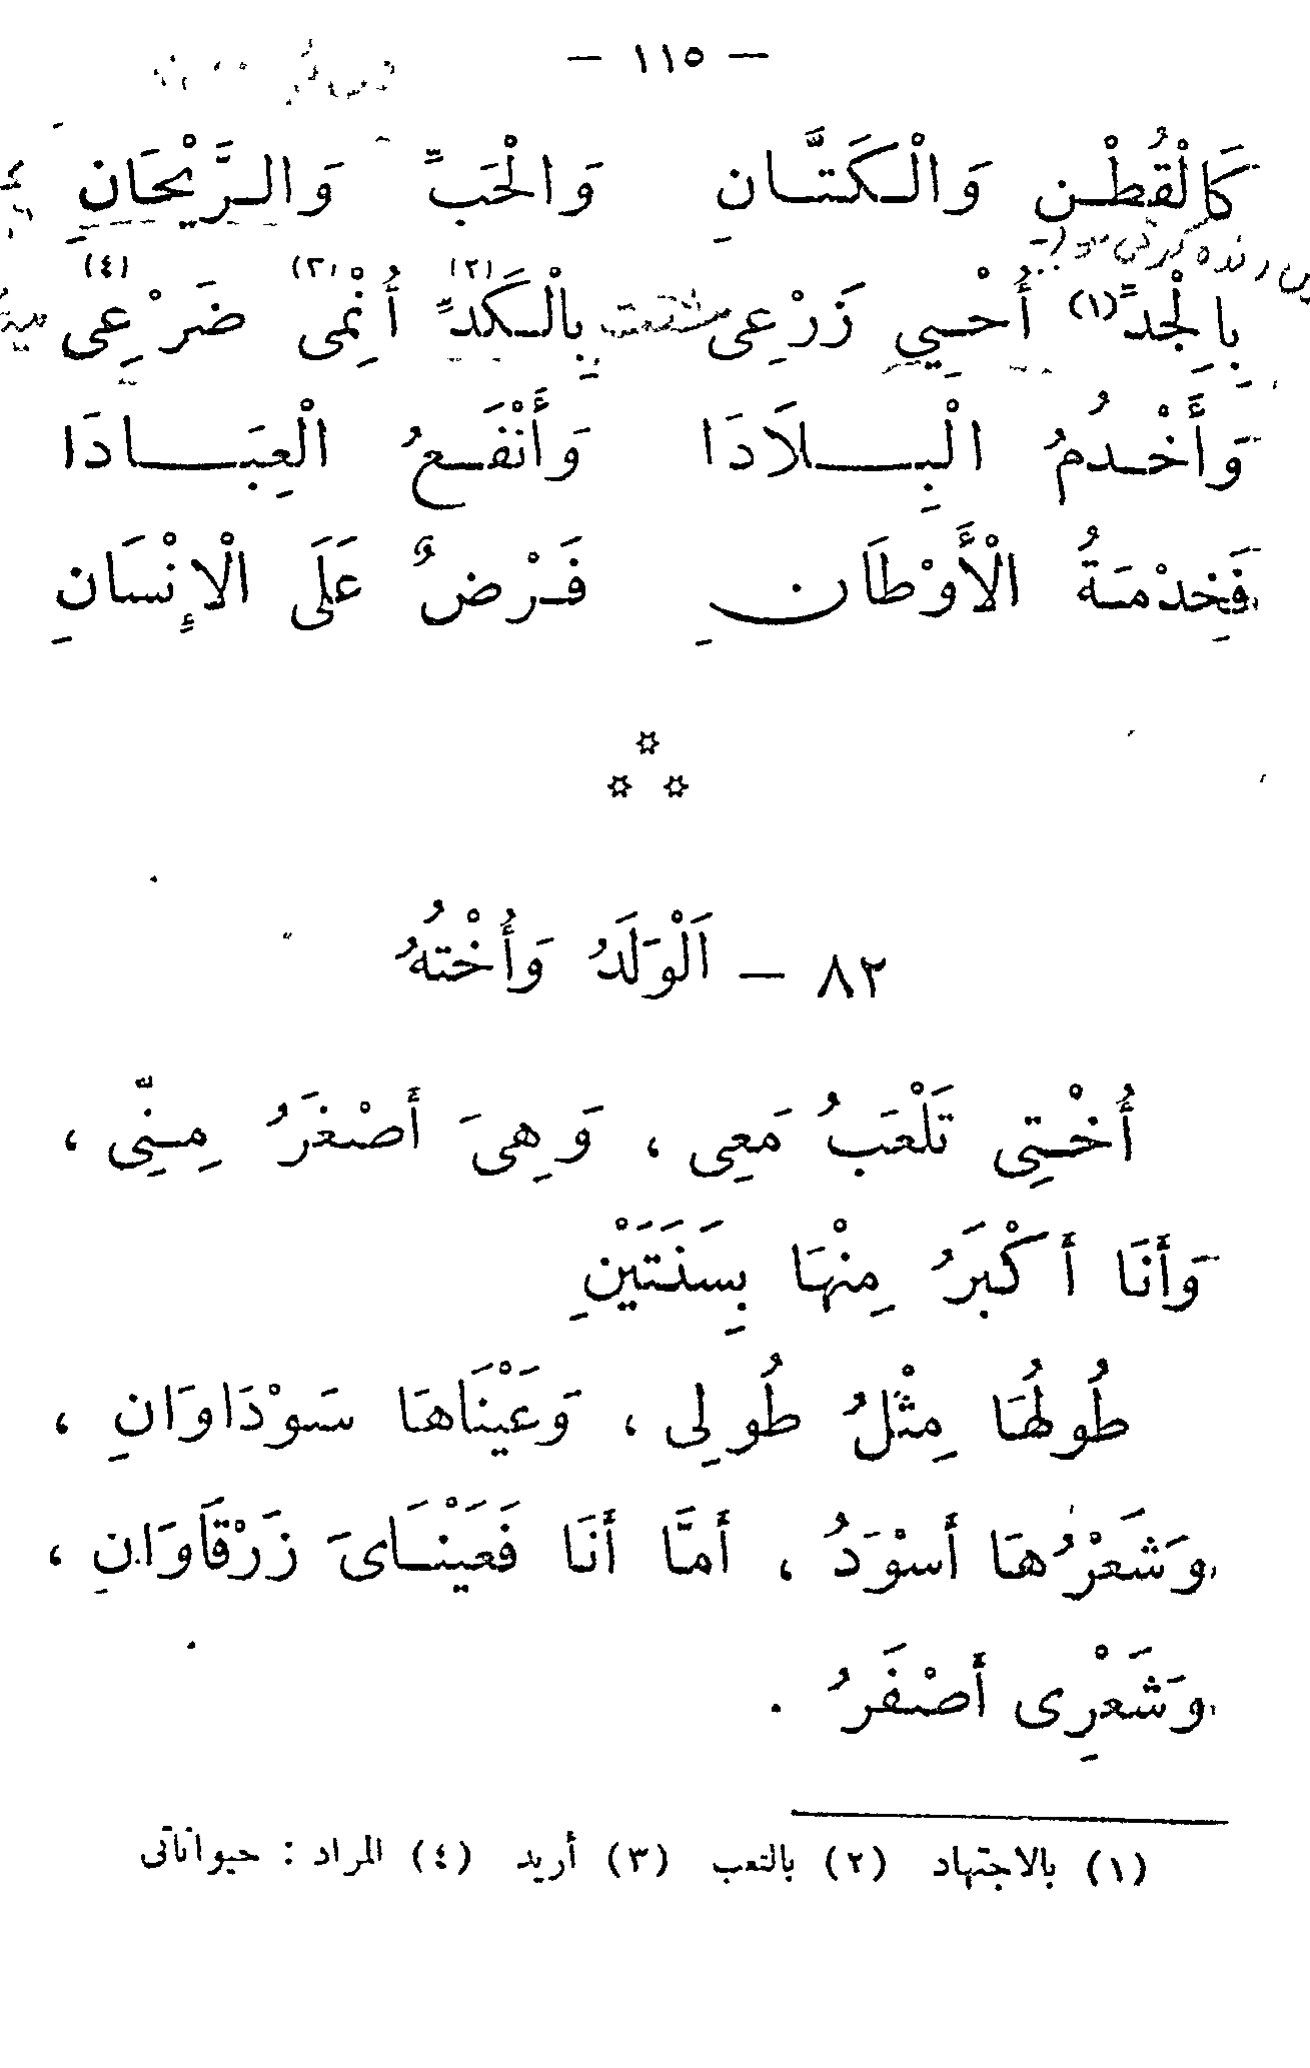 — ١١٥ —
كَالْقُطْنِ وَالْكَتَّانِ وَالْحَبِّ وَالرَّيْحَانِ
بِالْجِدِّ (١) أُحْيِي زَرْعِى بِالْكَدِّ (٢) أُنْمِى (٣) ضَرْعِى (٤)
وَأَخْدُمُ الْبِلَادَا وَأَنْفَعُ الْعِبَادَا
فَخِدْمَةُ الْأَوْطَانِ فَرْضٌ عَلَى الْإِنْسَانِ
٨٢ — اَلْوَلَدُ وَأُخْتُهُ
أُخْتِى تَلْعَبُ مَعِى ، وَهِىَ أَصْغَرُ مِنِّى ،
وَأَنَا أَكْبَرُ مِنْهَا بِسَنَتَيْنِ
طُولُهَا مِثْلُ طُولِى ، وَعَيْنَاهَا سَوْدَاوَانِ ،
وَشَعْرُهَا أَسْوَدُ ، أَمَّا أَنَا فَعَيْنَاىَ زَرْقَاوَانِ ،
وَشَعْرِى أَصْفَرُ .
(١) بالاجتهاد (٢) بالتعب (٣) أريد (٤) المراد : حيواناتى